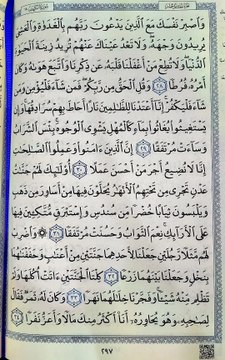 وَٱصْبِرْ نَفْسَكَ مَعَ ٱلَّذِينَ يَدْعُونَ رَبَّهُم بِٱلْغَدَوٰةِ وَٱلْعَشِىِّ
يُرِيدُونَ وَجْهَهُۥ وَلَا تَعْدُ عَيْنَاكَ عَنْهُمْ تُرِيدُ زِينَةَ ٱلْحَيَوٰةِ
ٱلدُّنْيَا وَلَا تُطِعْ مَنْ أَغْفَلْنَا قَلْبَهُۥ عَن ذِكْرِنَا وَٱتَّبَعَ هَوَىٰهُ وَكَانَ
أَمْرُهُۥ فُرُطًا ٢٨ وَقُلِ ٱلْحَقُّ مِن رَّبِّكُمْ فَمَن شَآءَ فَلْيُؤْمِن وَمَن
شَآءَ فَلْيَكْفُرْ إِنَّآ أَعْتَدْنَا لِلظَّٰلِمِينَ نَارًا أَحَاطَ بِهِمْ سُرَادِقُهَا وَإِن
يَسْتَغِيثُوا۟ يُغَاثُوا۟ بِمَآءٍ كَٱلْمُهْلِ يَشْوِى ٱلْوُجُوهَ بِئْسَ ٱلشَّرَابُ
وَسَآءَتْ مُرْتَفَقًا ٢٩ إِنَّ ٱلَّذِينَ ءَامَنُوا۟ وَعَمِلُوا۟ ٱلصَّٰلِحَٰتِ
إِنَّا لَا نُضِيعُ أَجْرَ مَنْ أَحْسَنَ عَمَلًا ٣٠ أُو۟لَٰٓئِكَ لَهُمْ جَنَّٰتُ
عَدْنٍ تَجْرِى مِن تَحْتِهِمُ ٱلْأَنْهَٰرُ يُحَلَّوْنَ فِيهَا مِنْ أَسَاوِرَ مِن ذَهَبٍ
وَيَلْبَسُونَ ثِيَابًا خُضْرًا مِّن سُندُسٍ وَإِسْتَبْرَقٍ مُّتَّكِـِٔينَ فِيهَا
عَلَى ٱلْأَرَآئِكِ نِعْمَ ٱلثَّوَابُ وَحَسُنَتْ مُرْتَفَقًا ٣١ ۞ وَٱضْرِبْ
لَهُم مَّثَلًا رَّجُلَيْنِ جَعَلْنَا لِأَحَدِهِمَا جَنَّتَيْنِ مِنْ أَعْنَٰبٍ وَحَفَفْنَٰهُمَا
بِنَخْلٍ وَجَعَلْنَا بَيْنَهُمَا زَرْعًا ٣٢ كِلْتَا ٱلْجَنَّتَيْنِ ءَاتَتْ أُكُلَهَا وَلَمْ
تَظْلِم مِّنْهُ شَيْـًٔا وَفَجَّرْنَا خِلَٰلَهُمَا نَهَرًا ٣٣ وَكَانَ لَهُۥ ثَمَرٌ فَقَالَ
لِصَٰحِبِهِۦ وَهُوَ يُحَاوِرُهُۥٓ أَنَا۠ أَكْثَرُ مِنكَ مَالًا وَأَعَزُّ نَفَرًا ٣٤
٢٩٧